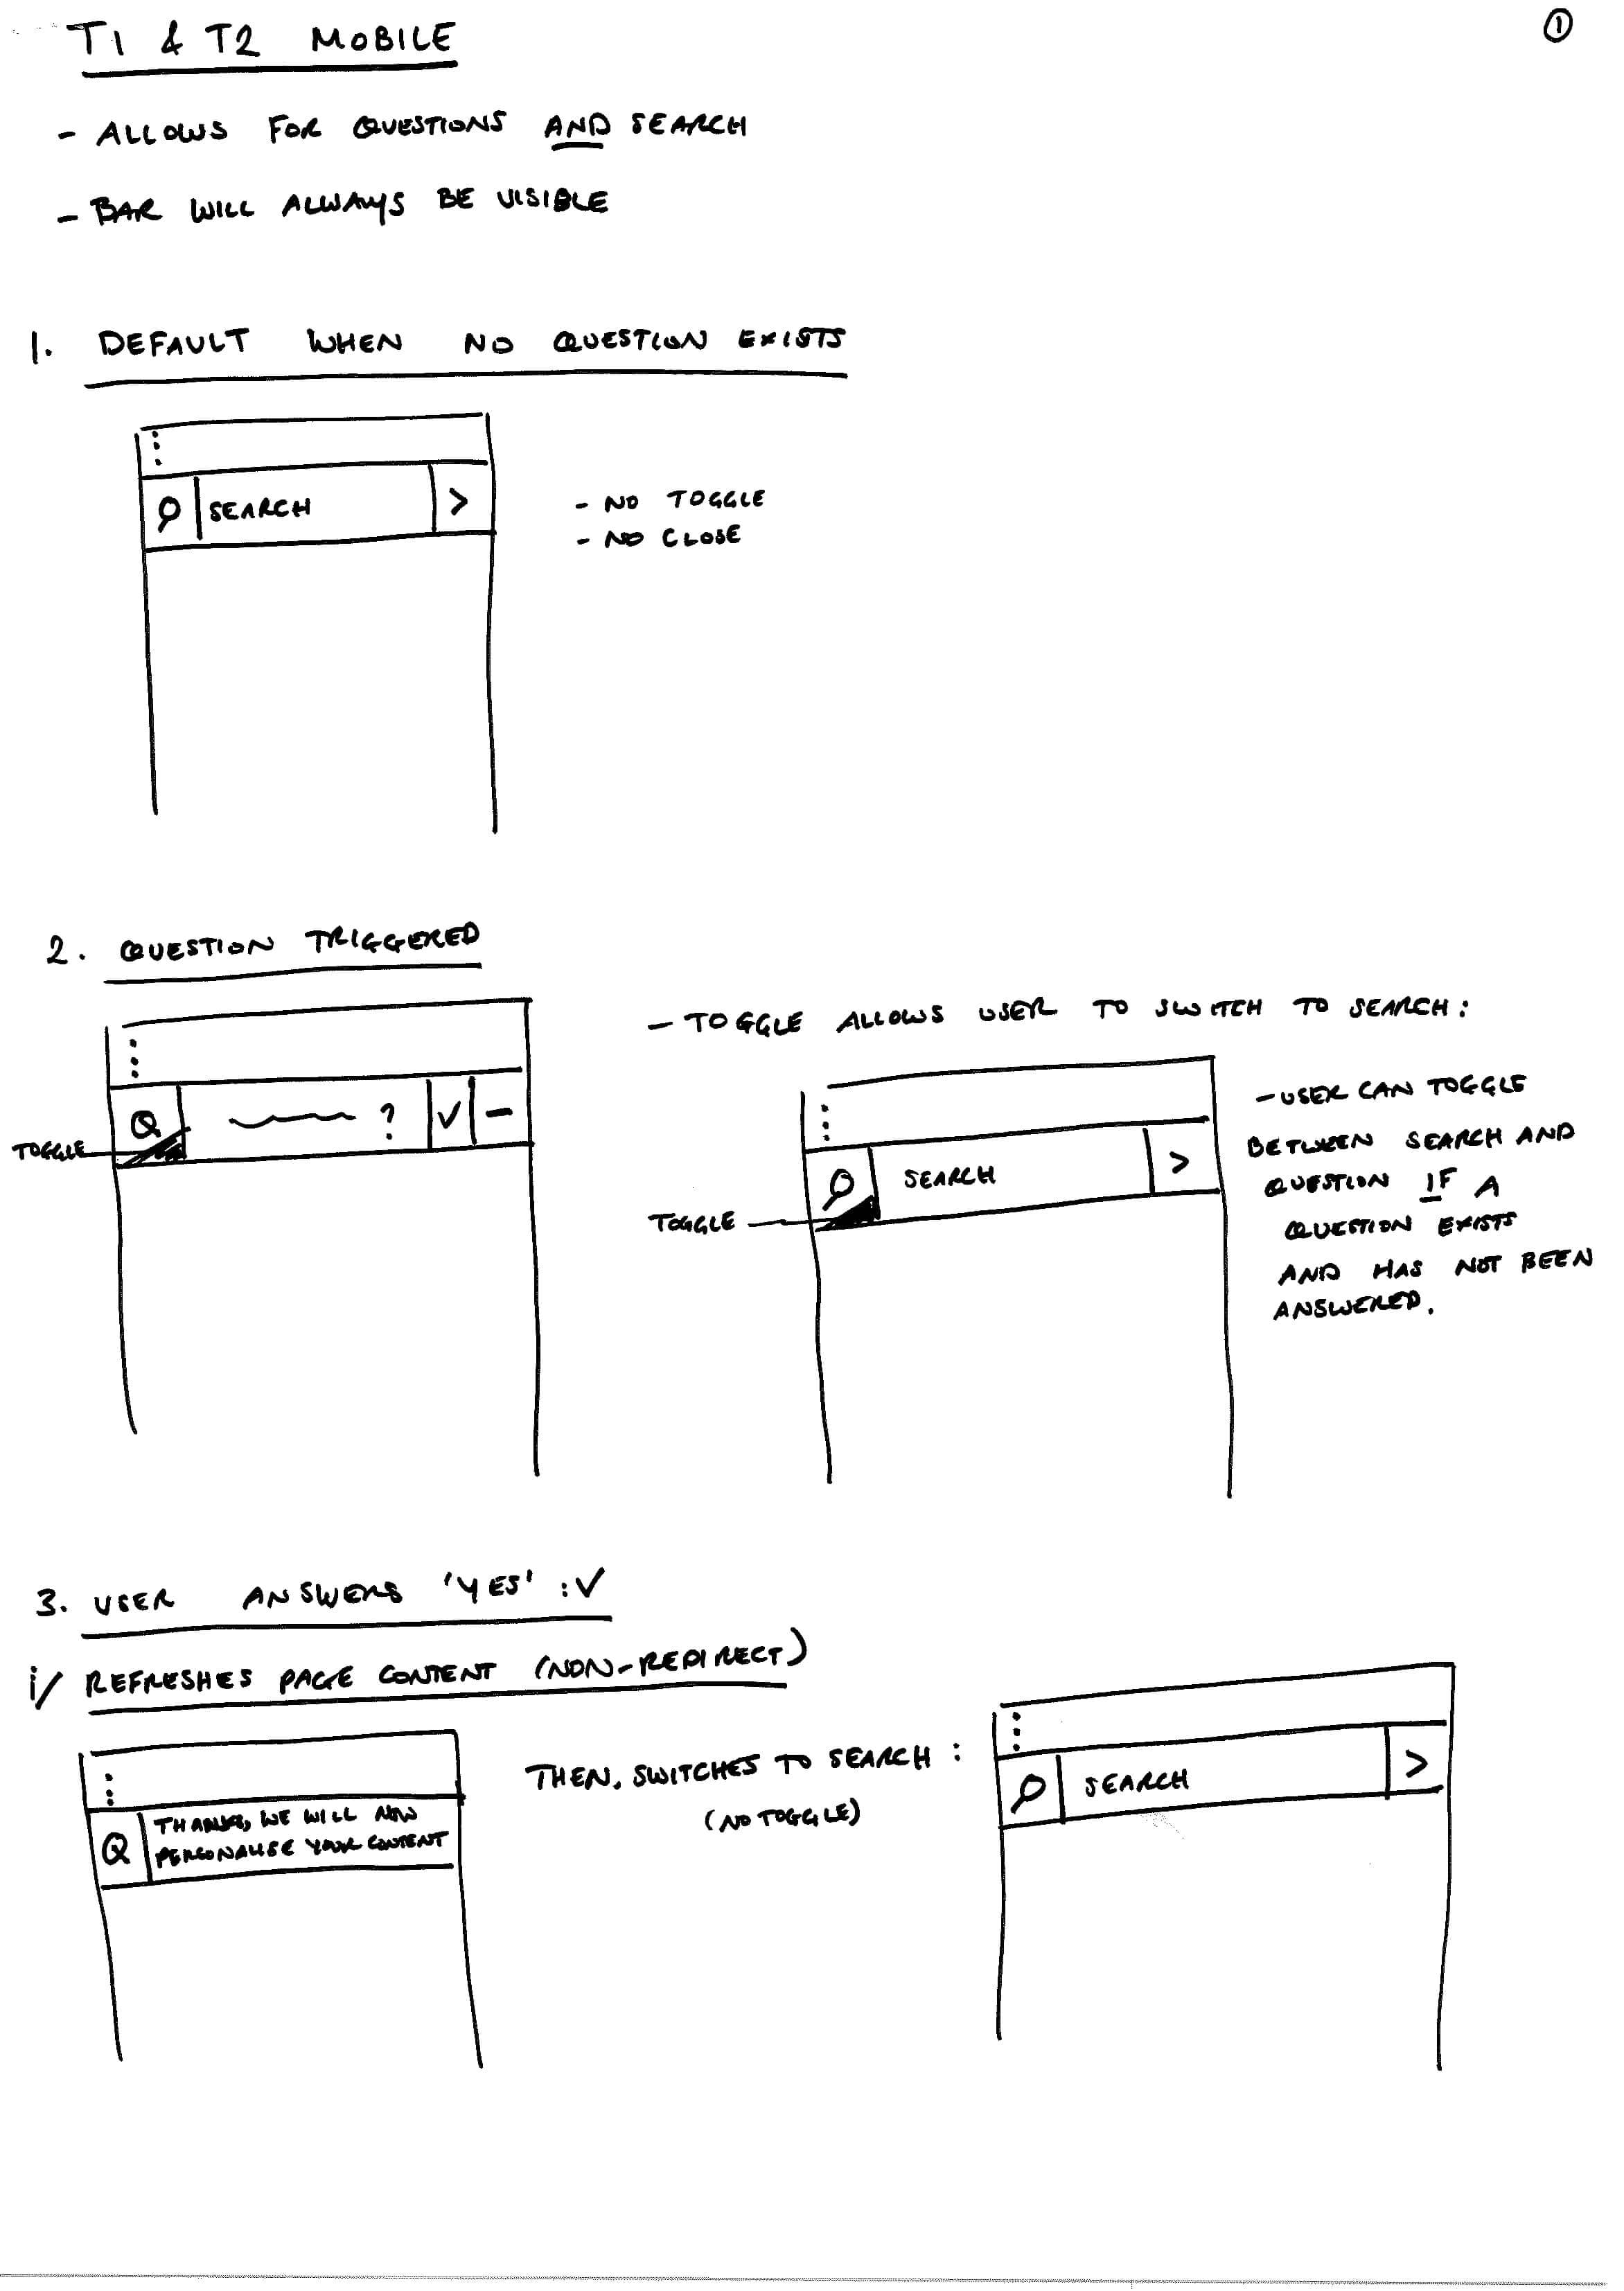 T1 & T2 MOBILE
1
- ALLOWS FOR QUESTIONS AND SEARCH
- BAR WILL ALWAYS BE VISIBLE
1. DEFAULT WHEN NO QUESTION EXISTS
SEARCH >
- NO TOGGLE
- NO CLOSE
2. QUESTION TRIGGERED
Q ? ✓ -
TOGGLE
- TOGGLE ALLOWS USER TO SWITCH TO SEARCH:
SEARCH >
TOGGLE
- USER CAN TOGGLE
BETWEEN SEARCH AND
QUESTION IF A
QUESTION EXISTS
AND HAS NOT BEEN
ANSWERED.
3. USER ANSWERS 'YES' : ✓
i/ REFRESHES PAGE CONTENT (NON-REDIRECT)
Q THANKS, WE WILL NOW
PERSONALISE YOUR CONTENT
THEN, SWITCHES TO SEARCH :
(NO TOGGLE)
SEARCH >